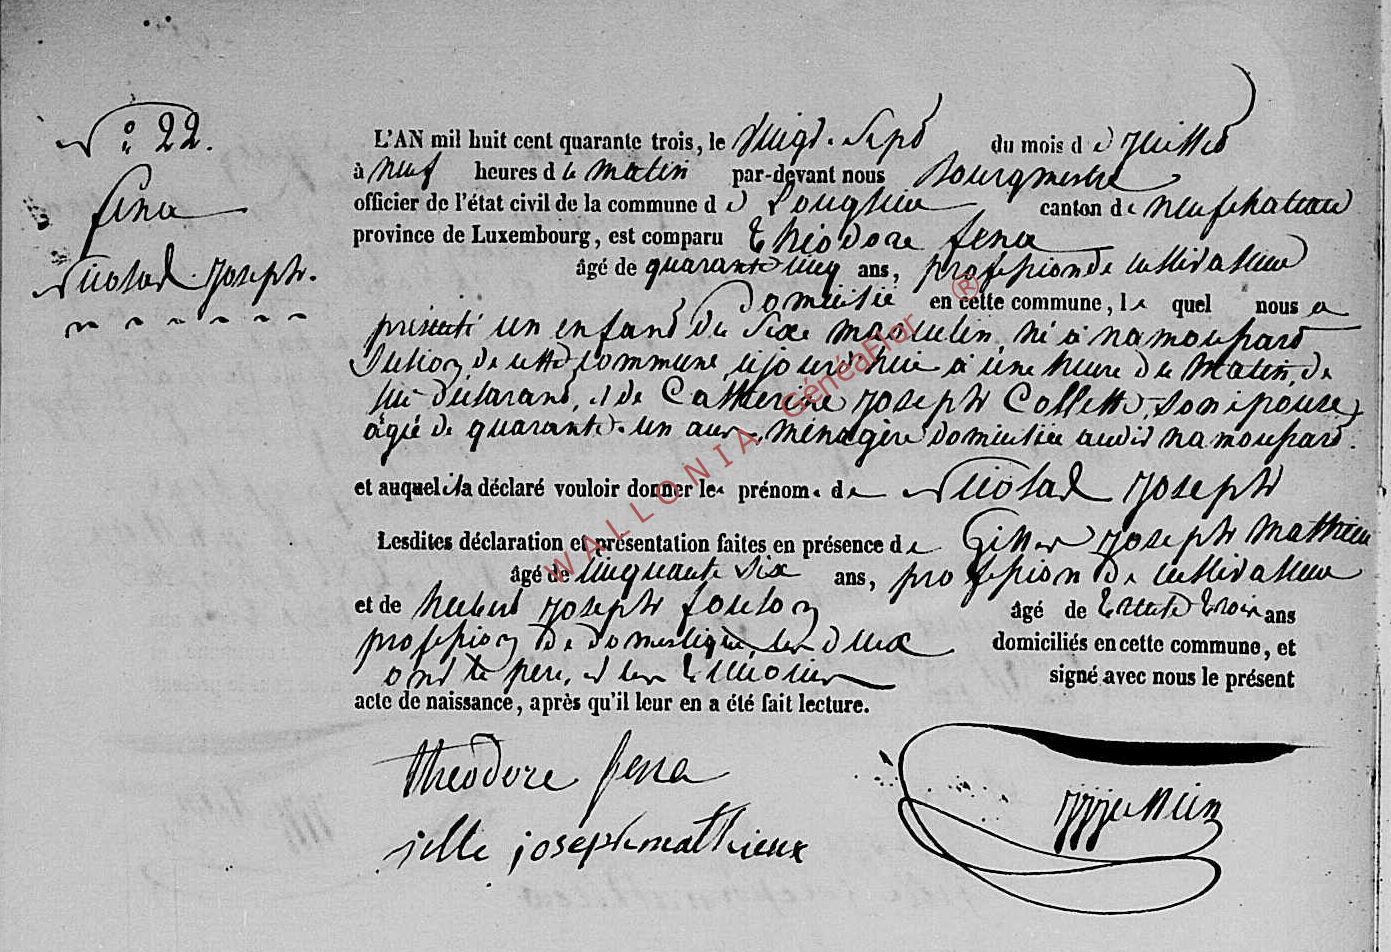 N° 22.
fena
Nicolas Joseph.
L'AN mil huit cent quarante trois, le Vingt-Sept du mois de Juillet
à neuf heures du matin par-devant nous Bourgmestre
officier de l'état civil de la commune de Longlier canton de neufchateau
province de Luxembourg, est comparu Théodore fena
âgé de quarante cinq ans, profession de cultivateur
Domicilié en cette commune, le quel nous a
présenté un enfant du Sexe masculin, né à namoupard
Section de cette commune, cejourd'hui à une heure du Matin, de
lui déclarant, et de Catherine Joseph Collette, son épouse,
âgée de quarante-un ans, ménagère domiciliée audit namoupard.
et auquel il a déclaré vouloir donner les prénoms de Nicolas Joseph
Lesdites déclaration et présentation faites en présence de Gilles Joseph Mathieu
âgé de cinquante six ans, profession de cultivateur
et de hubert Joseph foulon âgé de trente trois ans
profession de domestique, les deux domiciliés en cette commune, et
ont le père, et les témoins signé avec nous le présent
acte de naissance, après qu'il leur en a été fait lecture.
theodore fena
jille joseph mathieux
WALLONIA GénéaFlor ®